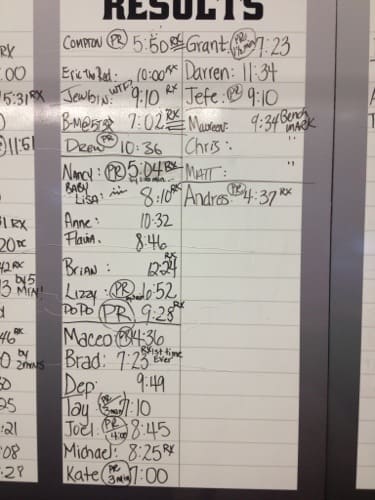 RESULTS
RX
:00
5:31 RX
11:51
31 RX
20
42 RX
13 by 5 MIN!
46 RX
0 by 2 mins
25
:21
:08
:28
COMPTON PR 5:50 RX
Eric The Red: 10:00 RX
JEWBIN: WTF? 9:10 RX
7:02 RX
Drew PR 10:36
Nancy: PR 5:04 RX
BABY LISA: 8:10 RX
Anne: 10:32
Flavia: 8:46
BRIAN: 12:24 RX
Lizzy: PR 6:52
POPO PR 9:28 RX
Maceo: PR 4:36
Brad: 7:23 RX 1st time Ever
Dep: 9:49
Tay PR 3 min 7:10
Joel: PR 4:00 8:45
Michael: 8:25 RX
Kate PR 3 min 7:00
Grant: PR 7:23
Darren: 11:34
Jefe: PR 9:10
Maureen: 9:34 Bench MARK
CHRIS: "
MATT: "
Andros: PR 4:37 RX